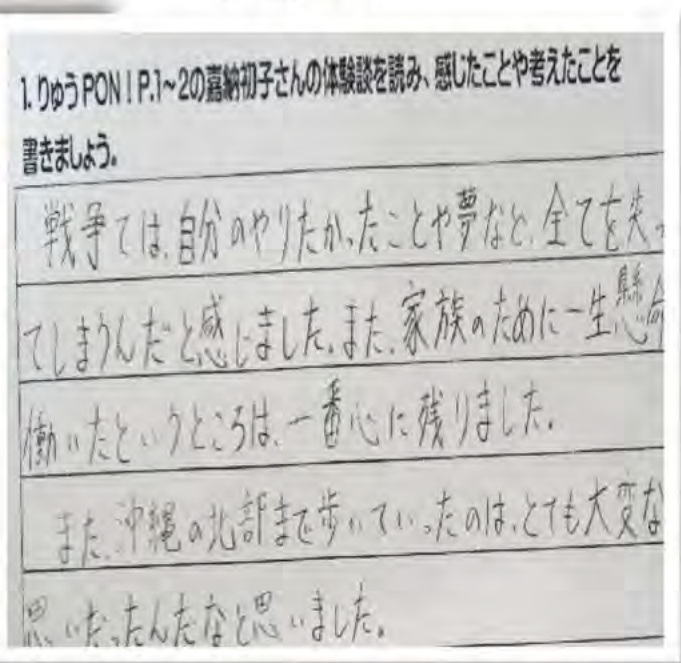 1. りゅうPON！P.1~2の嘉納初子さんの体験談を読み、感じたことや考えたことを
書きましょう。
戦争では、自分のやりたかったことや夢など、全てを失っ
てしまうんだと感じました。また、家族のために一生懸命
働いたというところは、一番心に残りました。
また、沖縄の北部まで歩いていったのは、とても大変な
思いだったんだなと思いました。